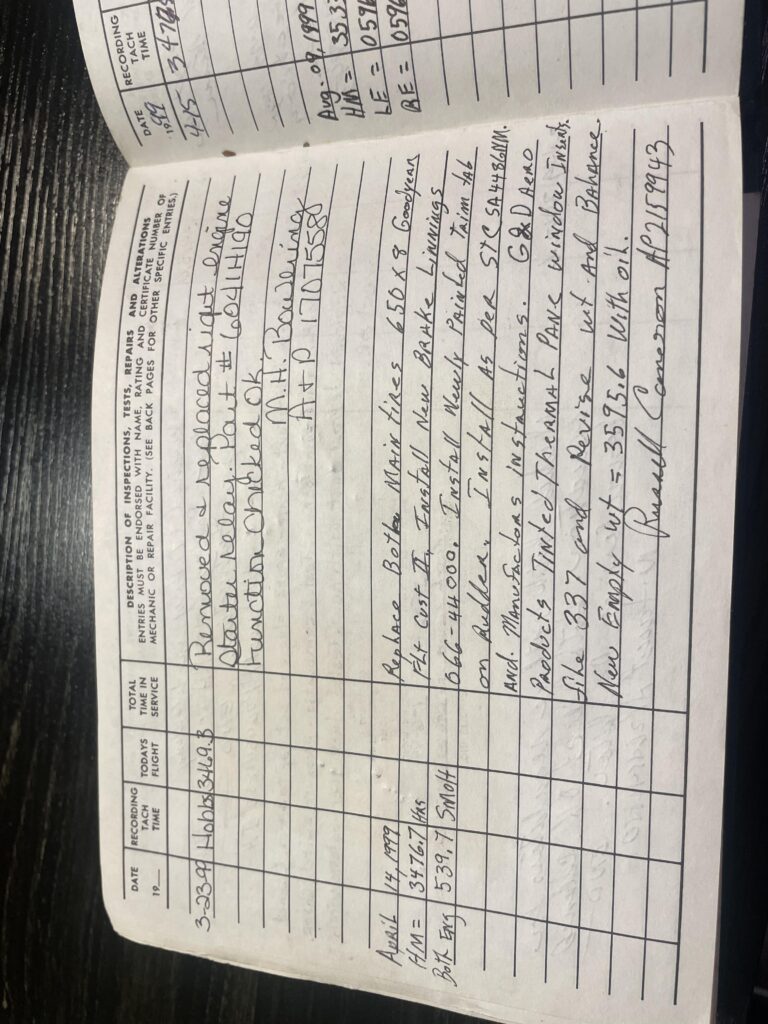 DATE
19__
RECORDING
TACH
TIME
TODAYS
FLIGHT
TOTAL
TIME IN
SERVICE
DESCRIPTION OF INSPECTIONS, TESTS, REPAIRS AND ALTERATIONS
ENTRIES MUST BE ENDORSED WITH NAME, RATING AND CERTIFICATE NUMBER OF
MECHANIC OR REPAIR FACILITY. (SEE BACK PAGES FOR OTHER SPECIFIC ENTRIES.)
3-23-99 Hobbs 3469.3 Removed & replaced right engine
starter relay. Part # 6041H190
Function Checked OK.
M.H. Bowling
A+P 17075580
April 14, 1999 Replace Both Main tires 650x8 Goodyear
H/M = 3476.7 Hrs Flt Cust II, Install New Brake Linnings
Both Eng 539.7 SMOH 066-44000. Install Newly Painted Trim tab
on Rudder. Install As per STC SA4486NM.
And. Manufactors instructions. G&D Aero
Products Tinted Thermal Pane window Inserts.
file 337 and Revise wt And Balance
New Empty wt = 3595.6 With oil.
Russell Cameron AP2159943
DATE
19 99
RECORDING
TACH
TIME
4-15
Aug. 09, 1999
HM =
LE =
RE =